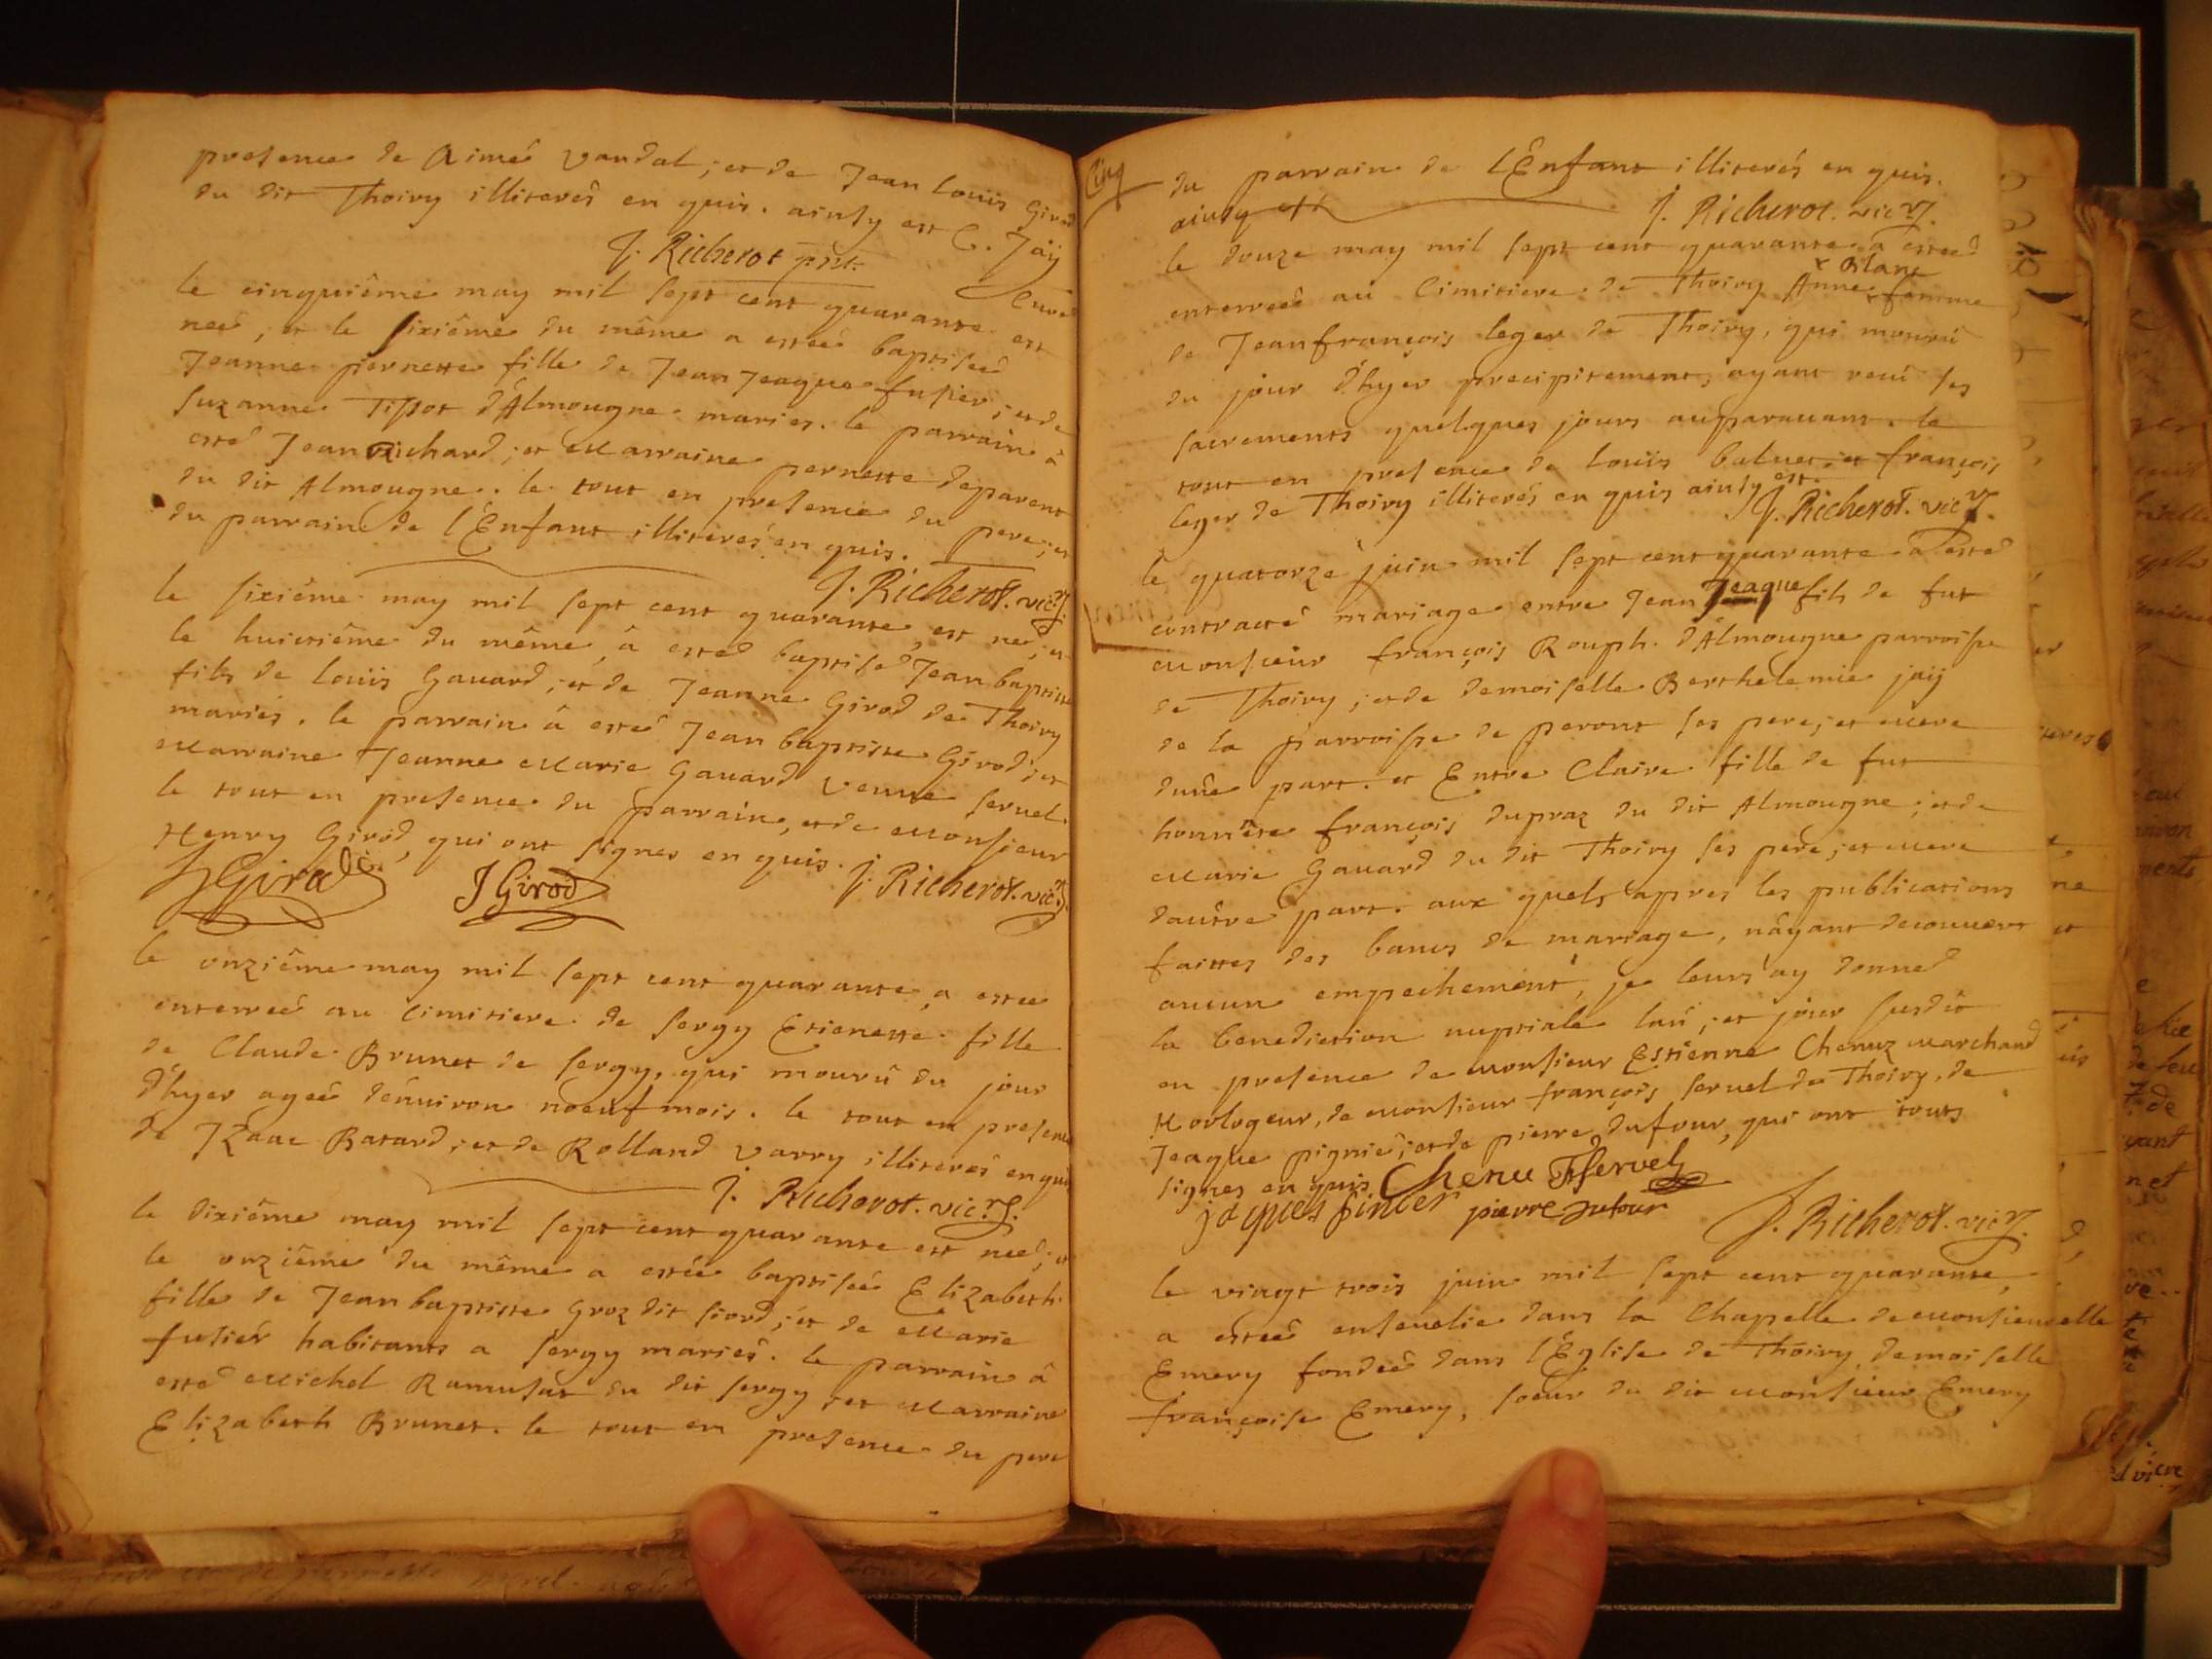 presence de Aimé Vandal ; et de Jean Louis Girod
du dit Thoiry illiterés en quis. ainsy est C. Jaÿ
J. Richerot prêt. Curé
le cinquiême may mil sept cent quarante est
neé, et le sixiême du même a esteé baptiseé
Jeanne pernette fille de Jean Jeaque fusier ; et de
Suzanne Tissot d'Almougne mariés. le parrain à
esté Jean Richard ; et Marraine pernette deparent
du dit Almougne. le tout en presence du pere, et
du parrain de l'Enfant illiterés en quis.
J. Richerot. vic.re
le sixiême may mil sept cent quarante est né ; et
le huictiême du même, à esté baptisé Jean baptiste
fils de Louis Gavard ; et de Jeanne Girod de Thoiry
mariés. le parrain à esté Jean baptiste Girod ; et
Marraine Jeanne Marie Gavard veuve servel.
le tout en presence du parrain, et de Monsieur
Henry Girod, qui ont signes en quis. J. Richerot. vic.re
H Girod J Girod
le onziême may mil sept cent quarante, a estee
enterreé au Cimitiere de sergy Etienette fille
de Claude Brunet de sergy, qui mourû du jour
d'hyer ageé d'énviron noeuf mois. le tout en presence
de Izaac Batard ; et de Rolland Varry illiterés en quis
J. Richerot. vic.re
le dixiême may mil sept cent quarante est neé ; et
le onziême du même a estée baptisée Elizabeth
fille de Jean baptiste Groz dit siord ; et de Marie
fusiér habitants a sergy mariés. le parrain à
esté Michel Ramusat du dit sergy ; et Marraine
Elizabeth Brunet. le tout en presence du pere
Cinq
du parrain de l'Enfant illiterés en quis.
ainsy est J. Richerot. vic.re
le douze may mil sept cent quarante a esteé
x Blanc
enterreé au Cimitiere de Thoiry Anne x femme
de Jeanfrançois leger de Thoiry, qui mourú
du jour d'hyer precipitement, ayant reçû ses
sacrements quelques jours auparavant. le
tout en presence de Louis baluet ; et françois
leger de Thoiry illiterés en quis ainsy est.
J. Richerot. vic.re
le quatorze juin mil sept cent quarante à esté
contracté mariage entre Jean Jeaque fils de fut
Monsieur françois Rouph d'Almougne parroisse
de Thoiry ; et de demoiselle Berthelemie jaÿ
de la parroisse de peront ses pere ; et mere
dune part. et Entre Claire fille de fut
honnête françois dupraz du dit Almougne ; et de
Marie Gavard du dit Thoiry ses pere ; et mere
dautre part. aux quels apres les publications
faittes des bancs de mariage, n'ayant decouvert
aucun empechement, je leurs ay donné
la benediction nuptiale lan ; et jour susdit
en presence de Monsieur Estienne Chenuz Marchand
Horlogeur, de Monsieur françois servel de Thoiry, de
Jeaque pignié ; et de pierre dufour, qui ont touts
signes en quis Chenu F Servel
jaques pinier pierre dufour
J. Richerot. vic.re
le vingt trois juin mil sept cent quarante,
a esteé ensevelie dans la Chapelle de Monsieur
Emery fondeé dans l'Eglise de Thoiry demoiselle
françoise Emery, soeur du dit Monsieur Emery